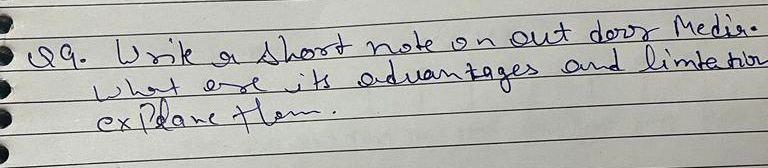 Q9. Write a short note on out door Media.
What are its advantages and limtation
explane them.